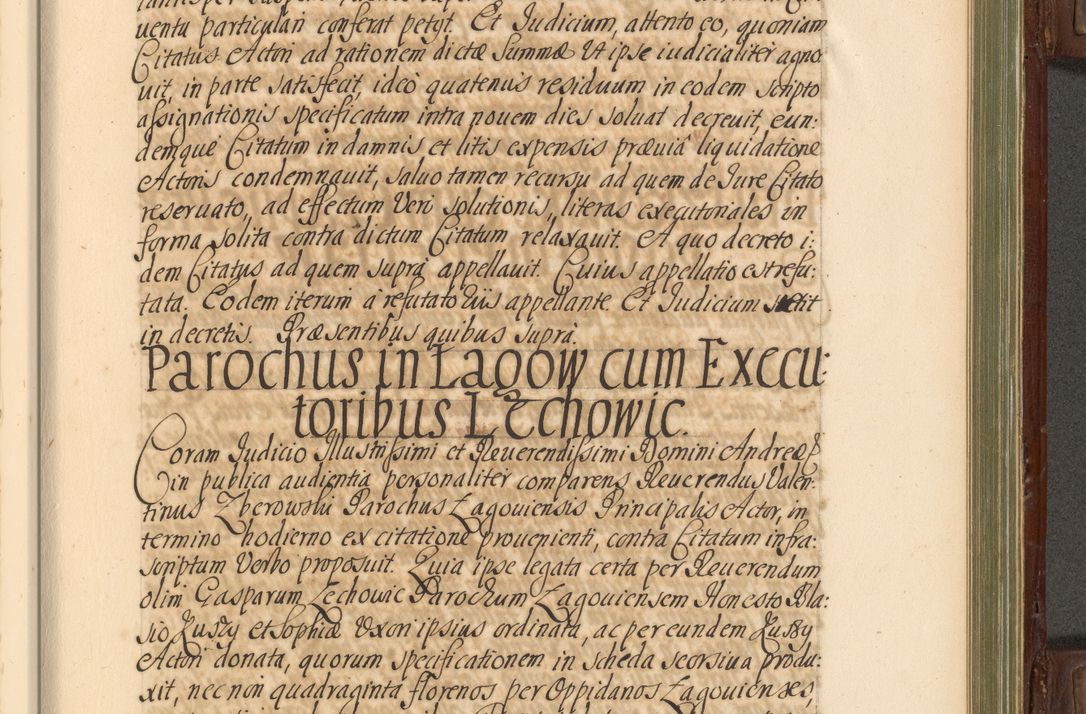 uentu particulari conferat petyt. Et Iudicium, attento eo, quoniam
Citatus Actori ad rationem dictæ summæ Ut ipse iudicialiter agno
uit, in parte satisfecit, ideo quatenus residuum in eodem scripto
assignationis specificatum intra nouem dies soluat decreuit, eun:
demque Citatum in damnis et litis expensis præuia liquidatione
Actoris condemnauit, saluo tamen recursu ad quem de Iure Citato
reseruato, ad effectum Veri solutionis, literas executoriales in
forma solita contra dictum Citatum relaxauit. A quo decreto i:
dem Citatus ad quem supra appellauit. Cuius appellatio est refu:
tata. Eodem iterum a refutatoriis appellante. Et Iudicium stetit
in decretis. Præsentibus quibus supra.
Parochus in Łagow cum Execu:
toribus Lechowic.
Coram Iudicio Illustrissimi et Reuerendissimi Domini Andreæ
in publica audientia personaliter comparens Reuerendus Valen:
tinus Zberowski Parochus Łagouiensis Principalis Actor, in
termino hodierno ex citatione prouenienti, contra Citatum infra:
scriptum Verbo proposuit. Quia ipse legata certa per Reuerendum
olim Gasparum Lechowic Parochum Łagouiensem Honesto Bla:
sio Kuszy et Sophiæ Uxori ipsius ordinata, ac per eundem Kuszy
Actori donata, quorum specificationem in scheda seorsiua produ:
xit, nec non quadraginta florenos per Oppidanos Łagouienses,